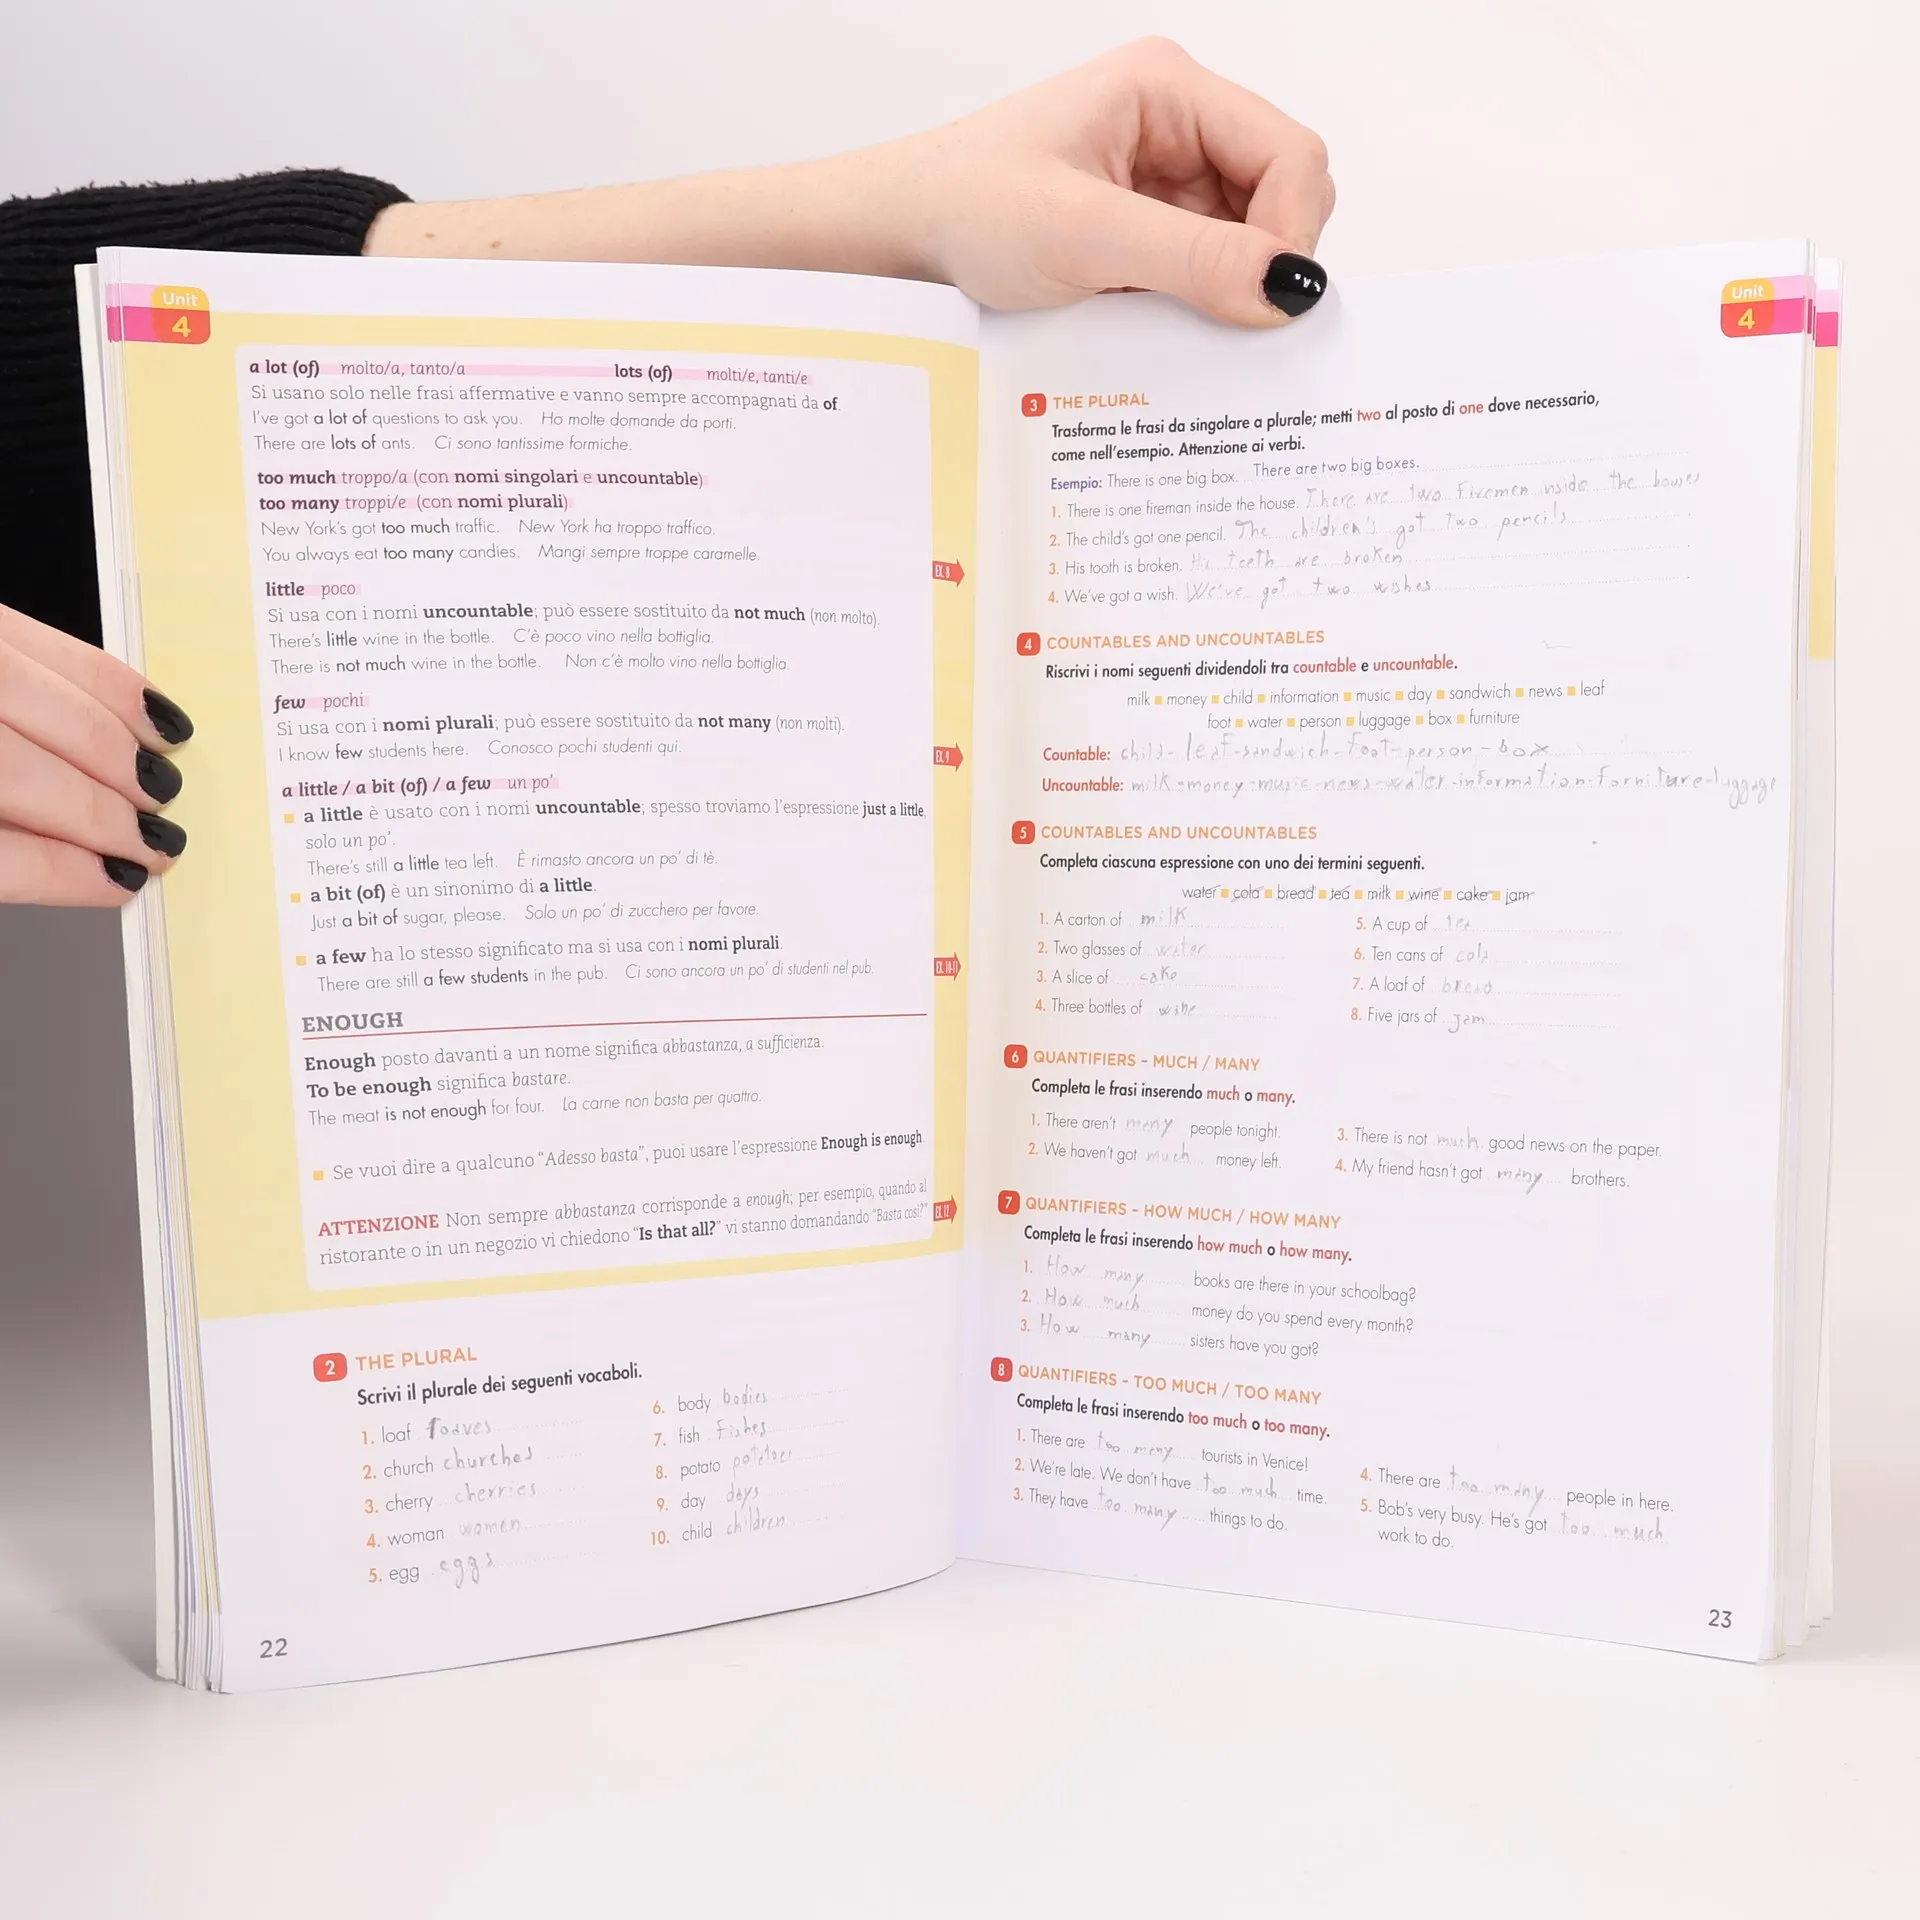 Unit
4
a lot (of) molto/a, tanto/a lots (of) molti/e, tanti/e
Si usano solo nelle frasi affermative e vanno sempre accompagnati da of.
I've got a lot of questions to ask you. Ho molte domande da porti.
There are lots of ants. Ci sono tantissime formiche.
too much troppo/a (con nomi singolari e uncountable)
too many troppi/e (con nomi plurali)
New York's got too much traffic. New York ha troppo traffico.
You always eat too many candies. Mangi sempre troppe caramelle.
EX. 8
little poco
Si usa con i nomi uncountable; può essere sostituito da not much (non molto).
There's little wine in the bottle. C'è poco vino nella bottiglia.
There is not much wine in the bottle. Non c'è molto vino nella bottiglia.
few pochi
Si usa con i nomi plurali; può essere sostituito da not many (non molti).
I know few students here. Conosco pochi studenti qui.
EX. 9
a little / a bit (of) / a few un po'
a little è usato con i nomi uncountable; spesso troviamo l'espressione just a little,
solo un po'.
There's still a little tea left. È rimasto ancora un po' di tè.
a bit (of) è un sinonimo di a little.
Just a bit of sugar, please. Solo un po' di zucchero per favore.
a few ha lo stesso significato ma si usa con i nomi plurali.
There are still a few students in the pub. Ci sono ancora un po' di studenti nel pub.
EX. 10-11
ENOUGH
Enough posto davanti a un nome significa abbastanza, a sufficienza.
To be enough significa bastare.
The meat is not enough for four. La carne non basta per quattro.
Se vuoi dire a qualcuno "Adesso basta", puoi usare l'espressione Enough is enough.
ATTENZIONE Non sempre abbastanza corrisponde a enough; per esempio, quando al
ristorante o in un negozio vi chiedono "Is that all?" vi stanno domandando "Basta così?"
EX. 12
2 THE PLURAL
Scrivi il plurale dei seguenti vocaboli.
1. loaf loaves
2. church churches
3. cherry cherries
4. woman women
5. egg eggs
6. body bodies
7. fish fishes
8. potato potatoes
9. day days
10. child children
22
Unit
4
3 THE PLURAL
Trasforma le frasi da singolare a plurale; metti two al posto di one dove necessario,
come nell'esempio. Attenzione ai verbi.
Esempio: There is one big box. There are two big boxes.
1. There is one fireman inside the house. There are two firemen inside the
2. The child's got one pencil. The children's got two pencils
3. His tooth is broken. His teeth are broken
4. We've got a wish. We've got two wishes
4 COUNTABLES AND UNCOUNTABLES
Riscrivi i nomi seguenti dividendoli tra countable e uncountable.
milk money child information music day sandwich news leaf
foot water person luggage box furniture
Countable: child-leaf-sandwich-foot-person-box
Uncountable: milk-money-music-news-water-information-forniture-luggage
5 COUNTABLES AND UNCOUNTABLES
Completa ciascuna espressione con uno dei termini seguenti.
water cola bread tea milk wine cake jam
1. A carton of milk
2. Two glasses of water
3. A slice of cake
4. Three bottles of wine
5. A cup of tea
6. Ten cans of cola
7. A loaf of bread
8. Five jars of jam
6 QUANTIFIERS - MUCH / MANY
Completa le frasi inserendo much o many.
1. There aren't many people tonight.
2. We haven't got much money left.
3. There is not much good news on the paper.
4. My friend hasn't got many brothers.
7 QUANTIFIERS - HOW MUCH / HOW MANY
Completa le frasi inserendo how much o how many.
1. How many books are there in your schoolbag?
2. How much money do you spend every month?
3. How many sisters have you got?
8 QUANTIFIERS - TOO MUCH / TOO MANY
Completa le frasi inserendo too much o too many.
1. There are too many tourists in Venice!
2. We're late. We don't have too much time.
3. They have too many things to do.
4. There are too many people in here.
5. Bob's very busy. He's got too much
work to do.
23